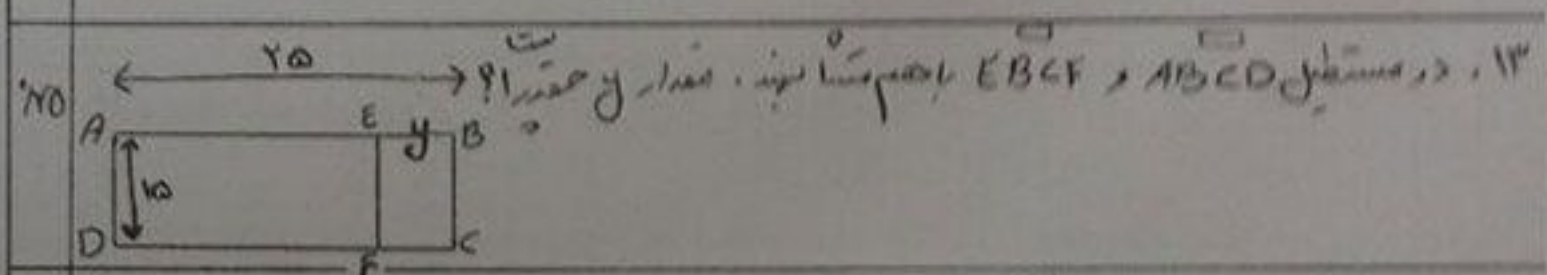 ۱۳. دو مستطیل ABCD و EBCF با هم متشابهند. مقدار y چقدر است؟
۲۵
A E y B
۱۵
D F C